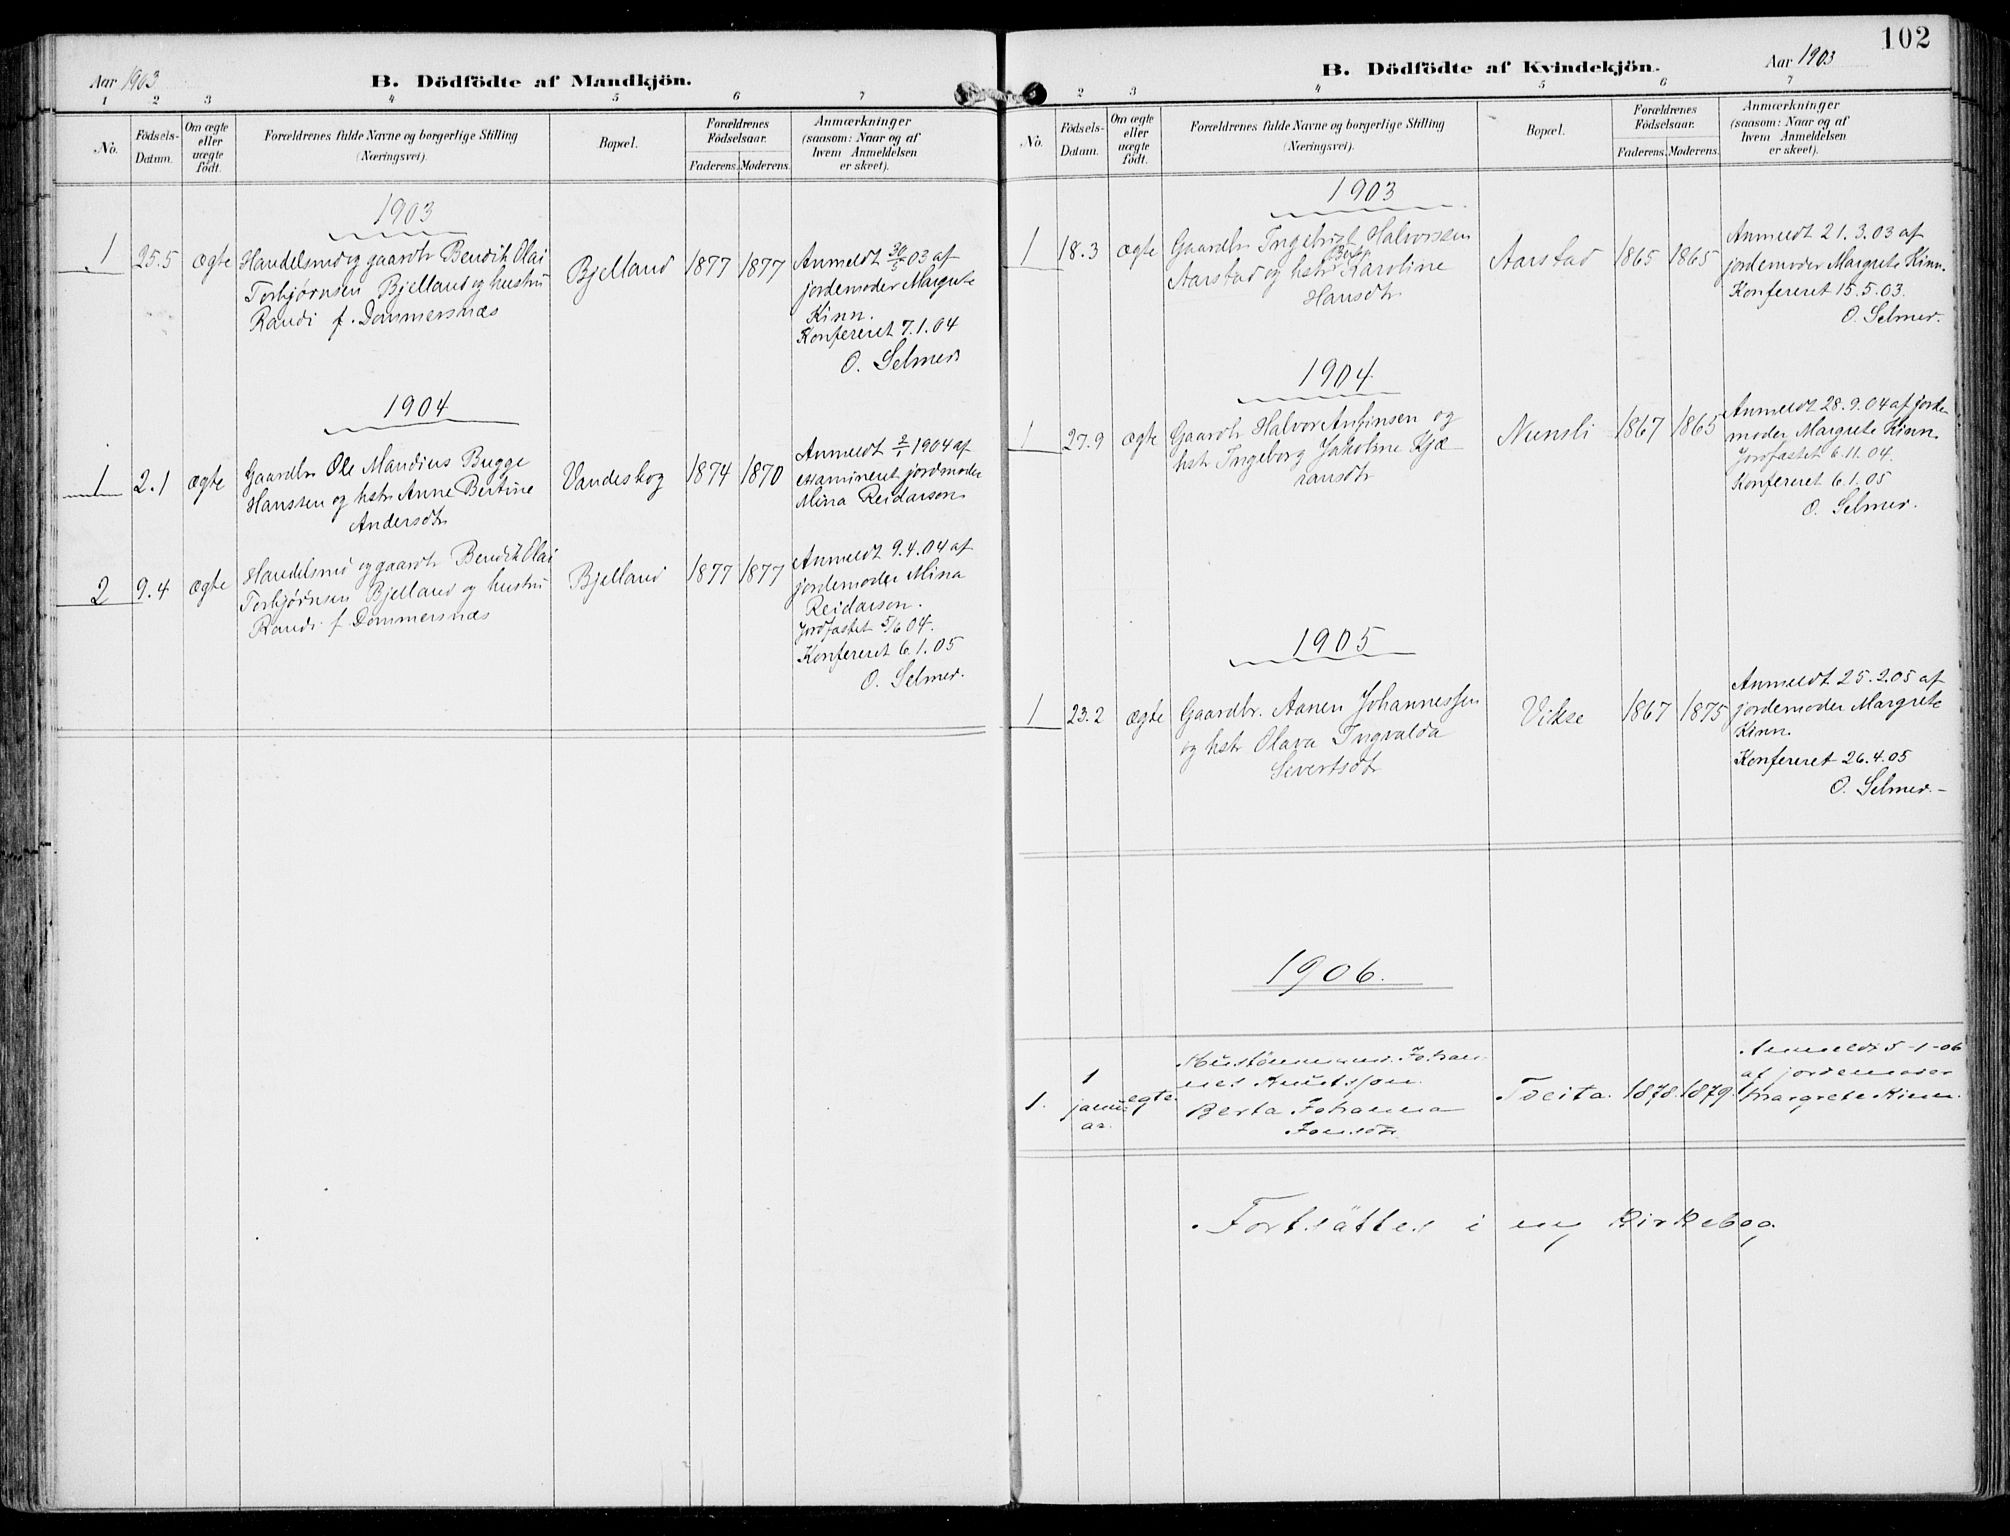 Aar 1903
B. Dödfödte af Mandkjön.
1 2 3 4 5 6 7
No.
Födsels-
Datum.
Om ægte
eller
uægte
födt.
Forældrenes fulde Navne og borgerlige Stilling
(Næringsvei).
Bopæl.
Forældrenes
Födselsaar.
Faderens. Moderens.
Anmærkninger
(saasom: Naar og af
hvem Anmeldelsen
er skeet).
1903
1 25.5 ægte
Handelsmd og gaardbr Bendik Olai
Torbjørnsen Bjelland og hustru
Randi f. Dommersnæs
Bjelland 1877 1877
Anmeldt 30/5 03 af
jordemoder Margrete
Kinn.
Konfereret 7.1.04
O. Selmer
1904
1 2.1 ægte
Gaardbr Ole Mandius Bugge
Hanssen og hstr Anne Bertine
Andersdtr
Vandeskog 1874 1870
Anmeldt 2/1 1904 af
examineret jordmoder
Mina Reidarson
2 9.4 ægte
Handelsmd og gaardbr Bendik Olai
Torbjørnsen Bjelland og hustru
Randi f Dommersnæs
Bjelland 1877 1877
Anmeldt 9.4.04 af
jordemoder Mina
Reidarson.
Jordfæstet 5/6 04.
Konfereret 6.1.05
O. Selmer.
102
B. Dödfödte af Kvindekjön.
Aar 1903
2 3 4 5 6 7
No.
Födsels-
Datum.
Om ægte
eller
uægte
födt.
Forældrenes fulde Navne og borgerlige Stilling
(Næringsvei).
Bopæl.
Forældrenes
Födselsaar.
Faderens. Moderens.
Anmærkninger
(saasom: Naar og af
hvem Anmeldelsen
er skeet).
1903
1 18.3 ægte
Gaardbr Ingebrigt Halvorsen
Aarstad og hstr Karoline
Hansdtr
Aarstad 1865 1865
Anmeldt 21.3.03 af
jordemoder Margrete Kinn.
Konfereret 15.5.03.
O. Selmer.
1904
1 27.9 ægte
Gaardbr Halvor Anfinsen og
hstr Ingeborg Jakobine Kjæ
ransdtr
Nunsli 1867 1865
Anmeldt 28.9.04 af jorde
moder Margrete Kinn.
Jordfæstet 6.11.04.
Konfereret 6.1.05
O. Selmer.
1905
1 23.2 ægte
Gaardbr. Aanen Johannessen
og hstr Olava Ingvalda
Sivertsdtr
Vikse 1867 1875
Anmeldt 25.2.05 af
jordemoder Margrete
Kinn.
Konfereret 26.4.05
O. Selmer.-
1906.
1. 1
janu
ar.
egte.
Johan
nes Knutsson.
Berta Johanna
Jonsdtr.
Tveita. 1878. 1879.
Anmeldt 5-1-06
af jordemoder
Margrete Kinn.
Fortsättes i ny Kirkebog.